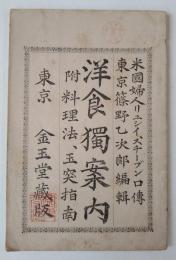 米國婦人リユシイスチーブン口傳
東京篠野乙次郎編輯
洋食獨案内
附料理法玉突指南
東京 金玉堂蔵版